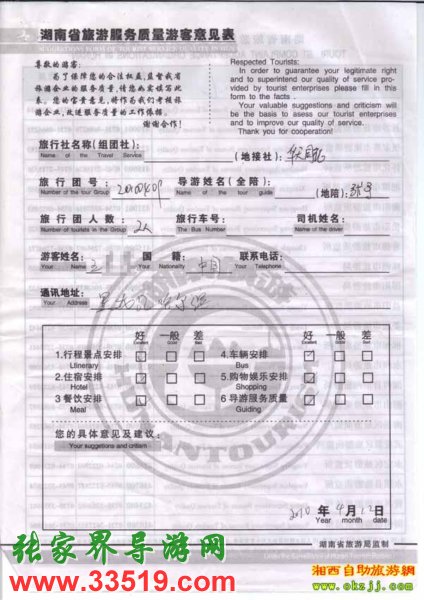 湖南省旅游服务质量游客意见表
尊敬的游客：
为了保障您的合法权益,监督我省
旅游企业的服务质量,请您如实填写此
表。您的宝贵意见,将作为我们考核旅
游企业,改进服务质量的工作依据。
谢谢合作!
Respected Tourists:
In order to guarantee your legitimate right
and to superintend our quality of service pro-
vided by tourist enterprises please fill in this
form to the facts
Your valuable suggestions and criticism will
be the basis to assess our tourist enterprises
and to improve our quality of service.
Thank you for cooperation!
旅行社名称(组团社): (地接社):
Name of the Travel Service
旅行团号: 导游姓名(全陪) (地陪):
Number of the tour Group Name of the tour guide
旅行团人数: 2人 旅行车号: 司机姓名:
Number of tourists in the Group The Bus Number Name of the driver
游客姓名: 国籍: 中国 联系电话:
Your Name Your Nationality Your Telephone
通讯地址: 黑龙江哈尔滨
Your Address
好 一般 差 好 一般 差
Excellent Good Bad Excellent Good Bad
1.行程景点安排 4.车辆安排
Itinerary Bus
2.住宿安排 5.购物娱乐安排
Hotel Shopping
3 餐饮安排 6 导游服务质量
Meal Guiding
您的具体意见及建议:
Your suggetions and critism
HUNAN TOURISM
2010 年 4 月 22 日
Year month date
湖南省旅游局监制
张家界导游网
www.33519.com
湘西自助旅游网
www.okzjj.com